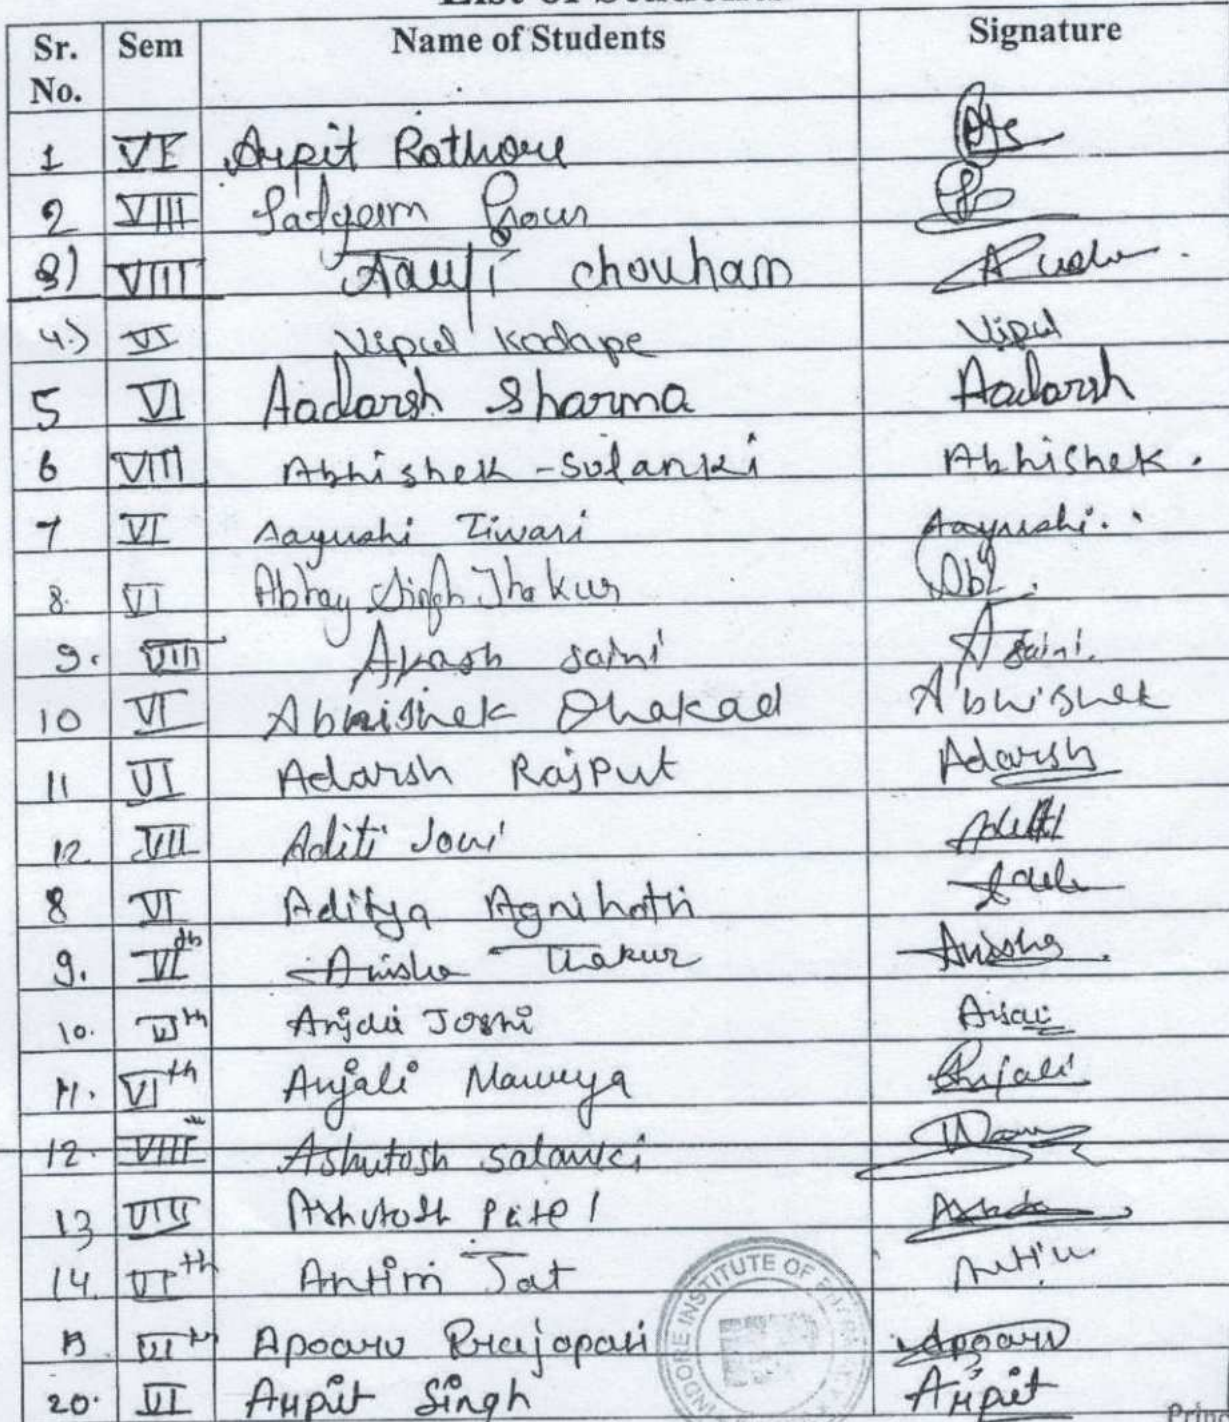 List of Students
Sr. No. Sem Name of Students Signature
1 VI Arpit Rathore
2 VIII Satyam Gour
3) VIII chouhan
4.) VI Vipul Kadape Vipul
5 VI Aadarsh Sharma Aadarsh
6 VIII Abhishek - Solanki Abhishek.
7 VI Aayushi Tiwari Aayushi.
8. VI Abhay Singh Thakur
9. VIII Akash saini A saini.
10 VI Abhishek Dhakad Abhishek
11 VI Adarsh Rajput Adarsh
12 VII Aditi Aditi
8 VI Aditya Agnihotri
9. VIth Anisha Thakur Anisha
10. VIth Anjali Joshi
11. VIth Anjali Maurya Anjali
12. VIII Ashutosh Solanki
13 VIII Ashutosh Patel
14. VIth Antim Jat Antim
Apoorv Prajapati Apoorv
20. VI Arpit Singh Arpit
INDORE INSTITUTE OF